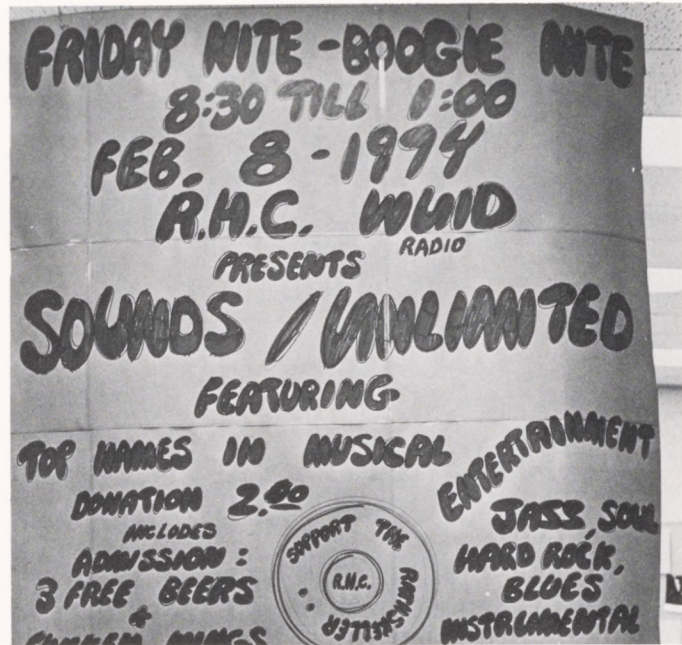 FRIDAY NITE - BOOGIE NITE
8:30 TILL 1:00
FEB. 8 - 1974
R.H.C. WUID
RADIO
PRESENTS
SOUNDS / UNLIMITED
FEATURING
TOP NAMES IN MUSICAL
ENTERTAINMENT
DONATION 2.00
INCLUDES
ADMISSION :
3 FREE BEERS
&
WINGS
SUPPORT THE
RATHSKELLER
R.H.C.
JASS, SOUL
HARD ROCK,
BLUES
INSTRUMENTAL